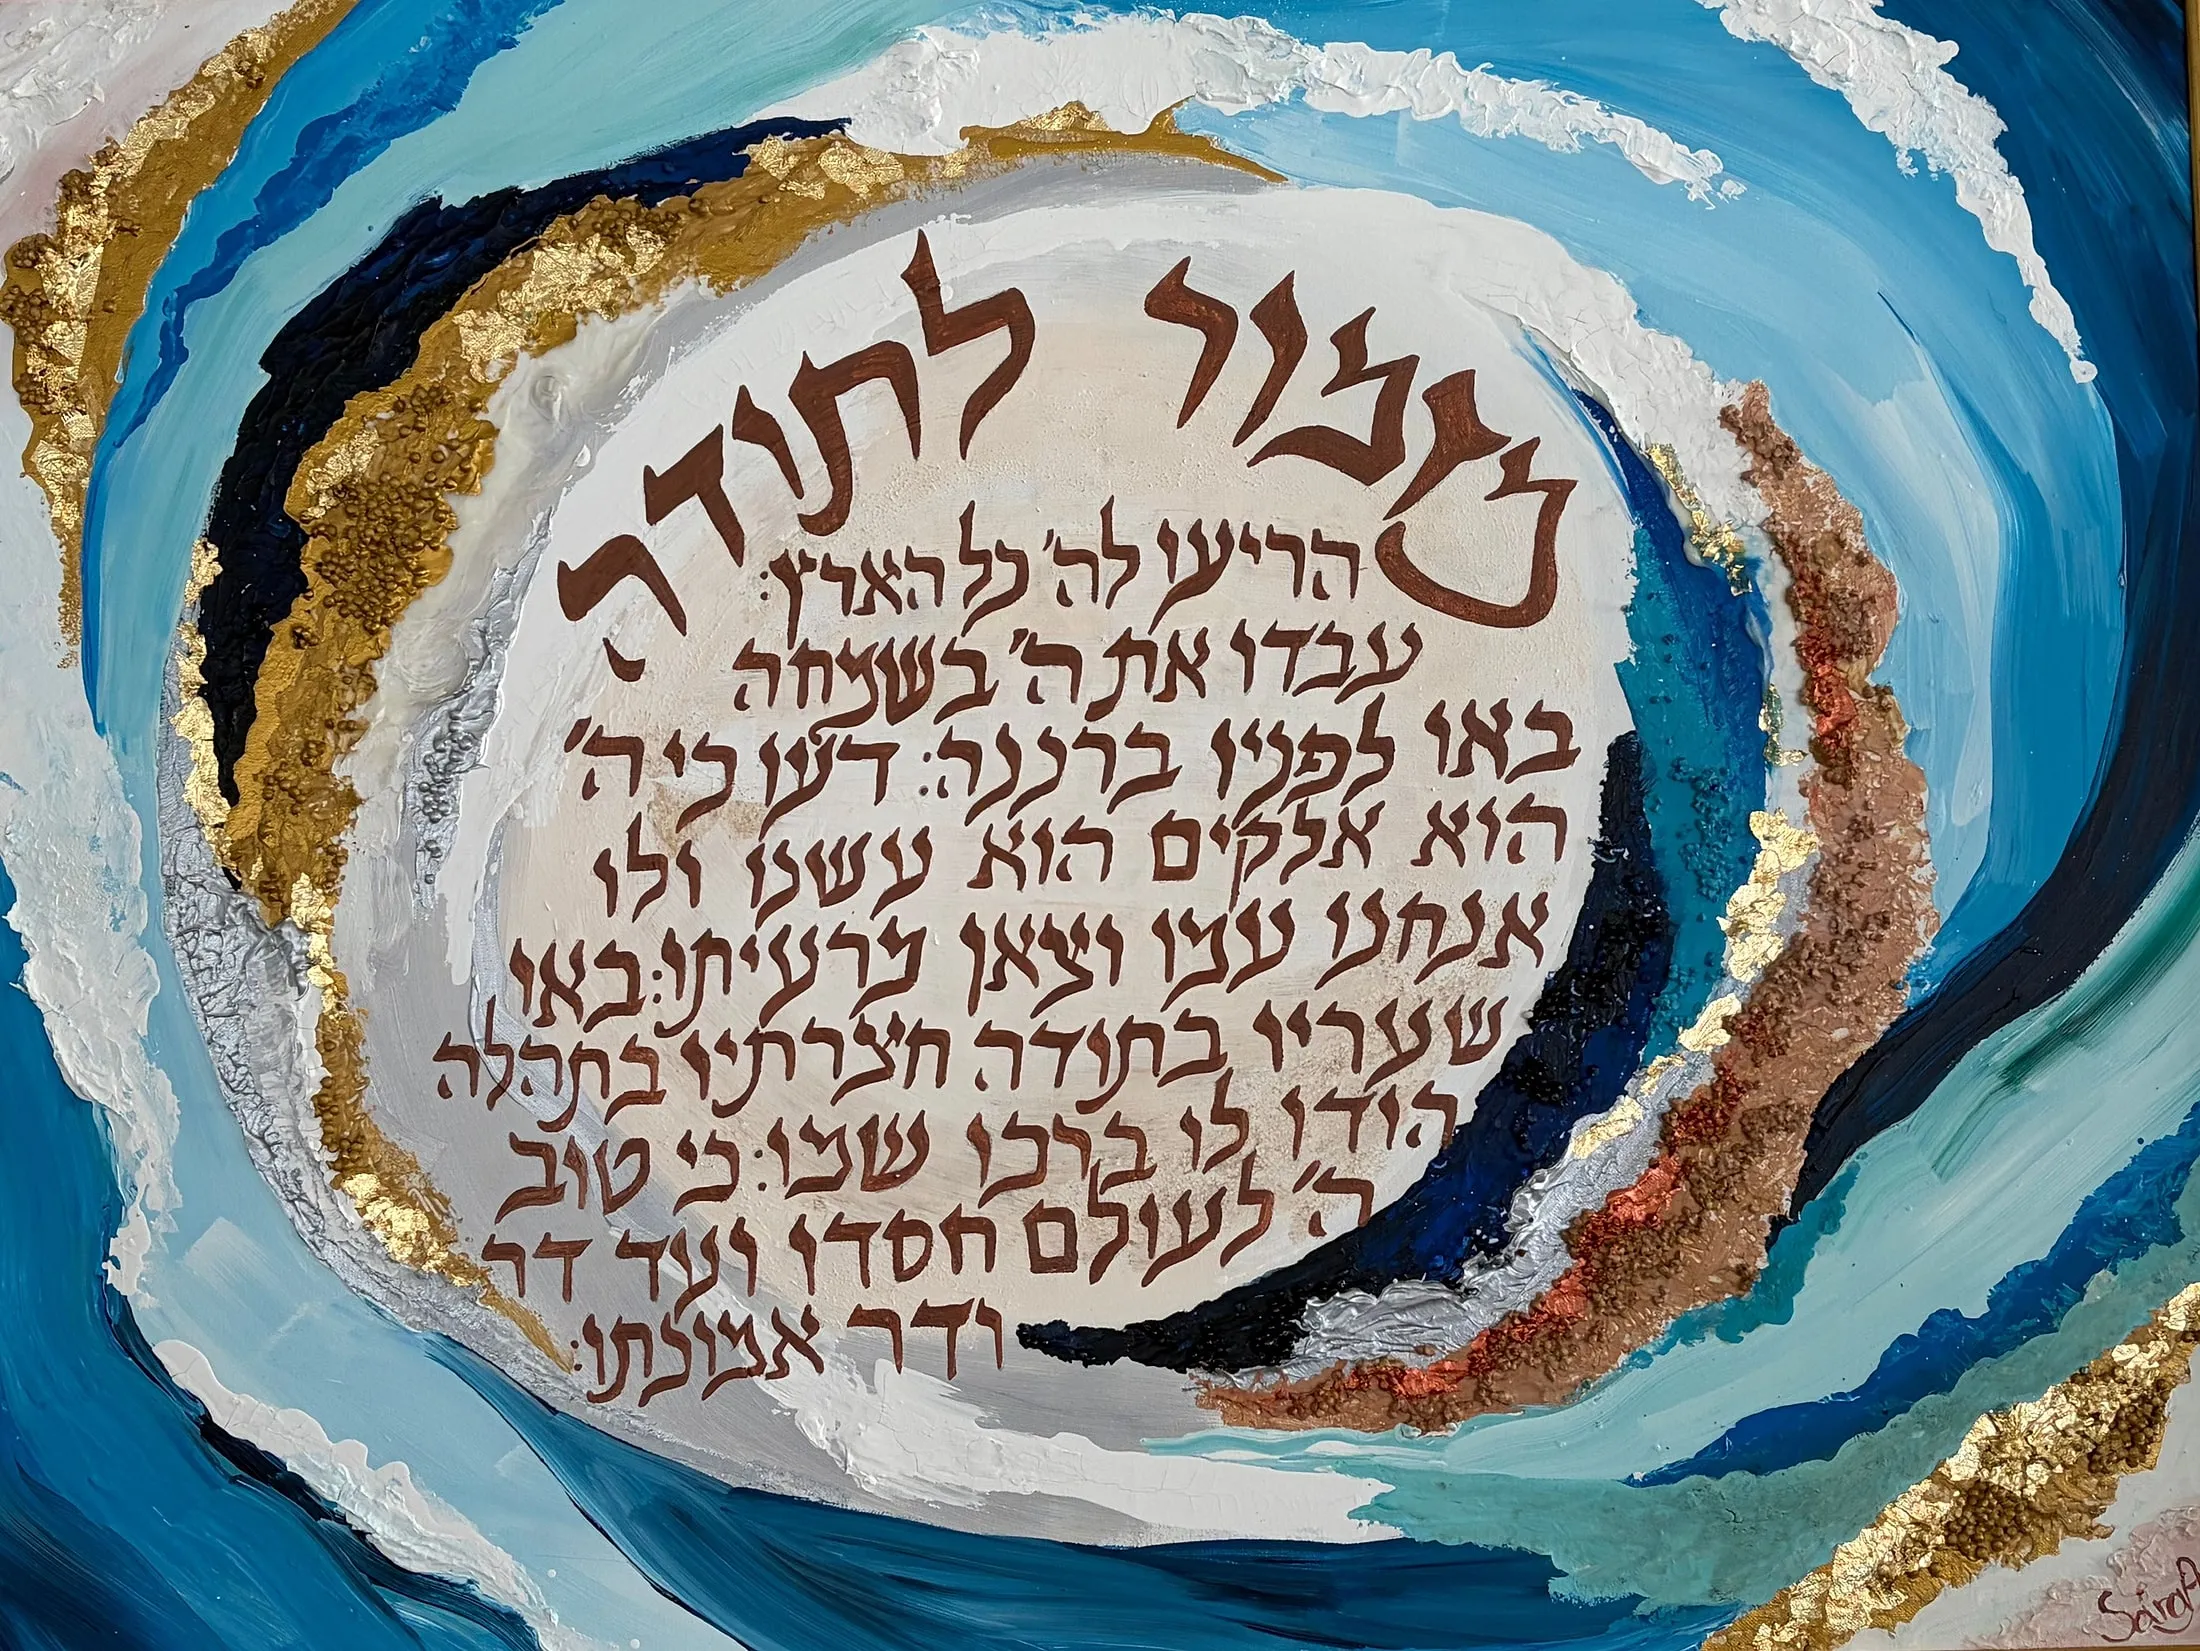 מזמור לתודה
הריעו לה' כל הארץ:
עבדו את ה' בשמחה
באו לפניו ברננה: דעו כי ה'
הוא אלקים הוא עשנו ולו
אנחנו עמו וצאן מרעיתו: באו
שעריו בתודה חצרתיו בתהלה
הודו לו ברכו שמו: כי טוב
ה' לעולם חסדו ועד דר
ודר אמונתו: